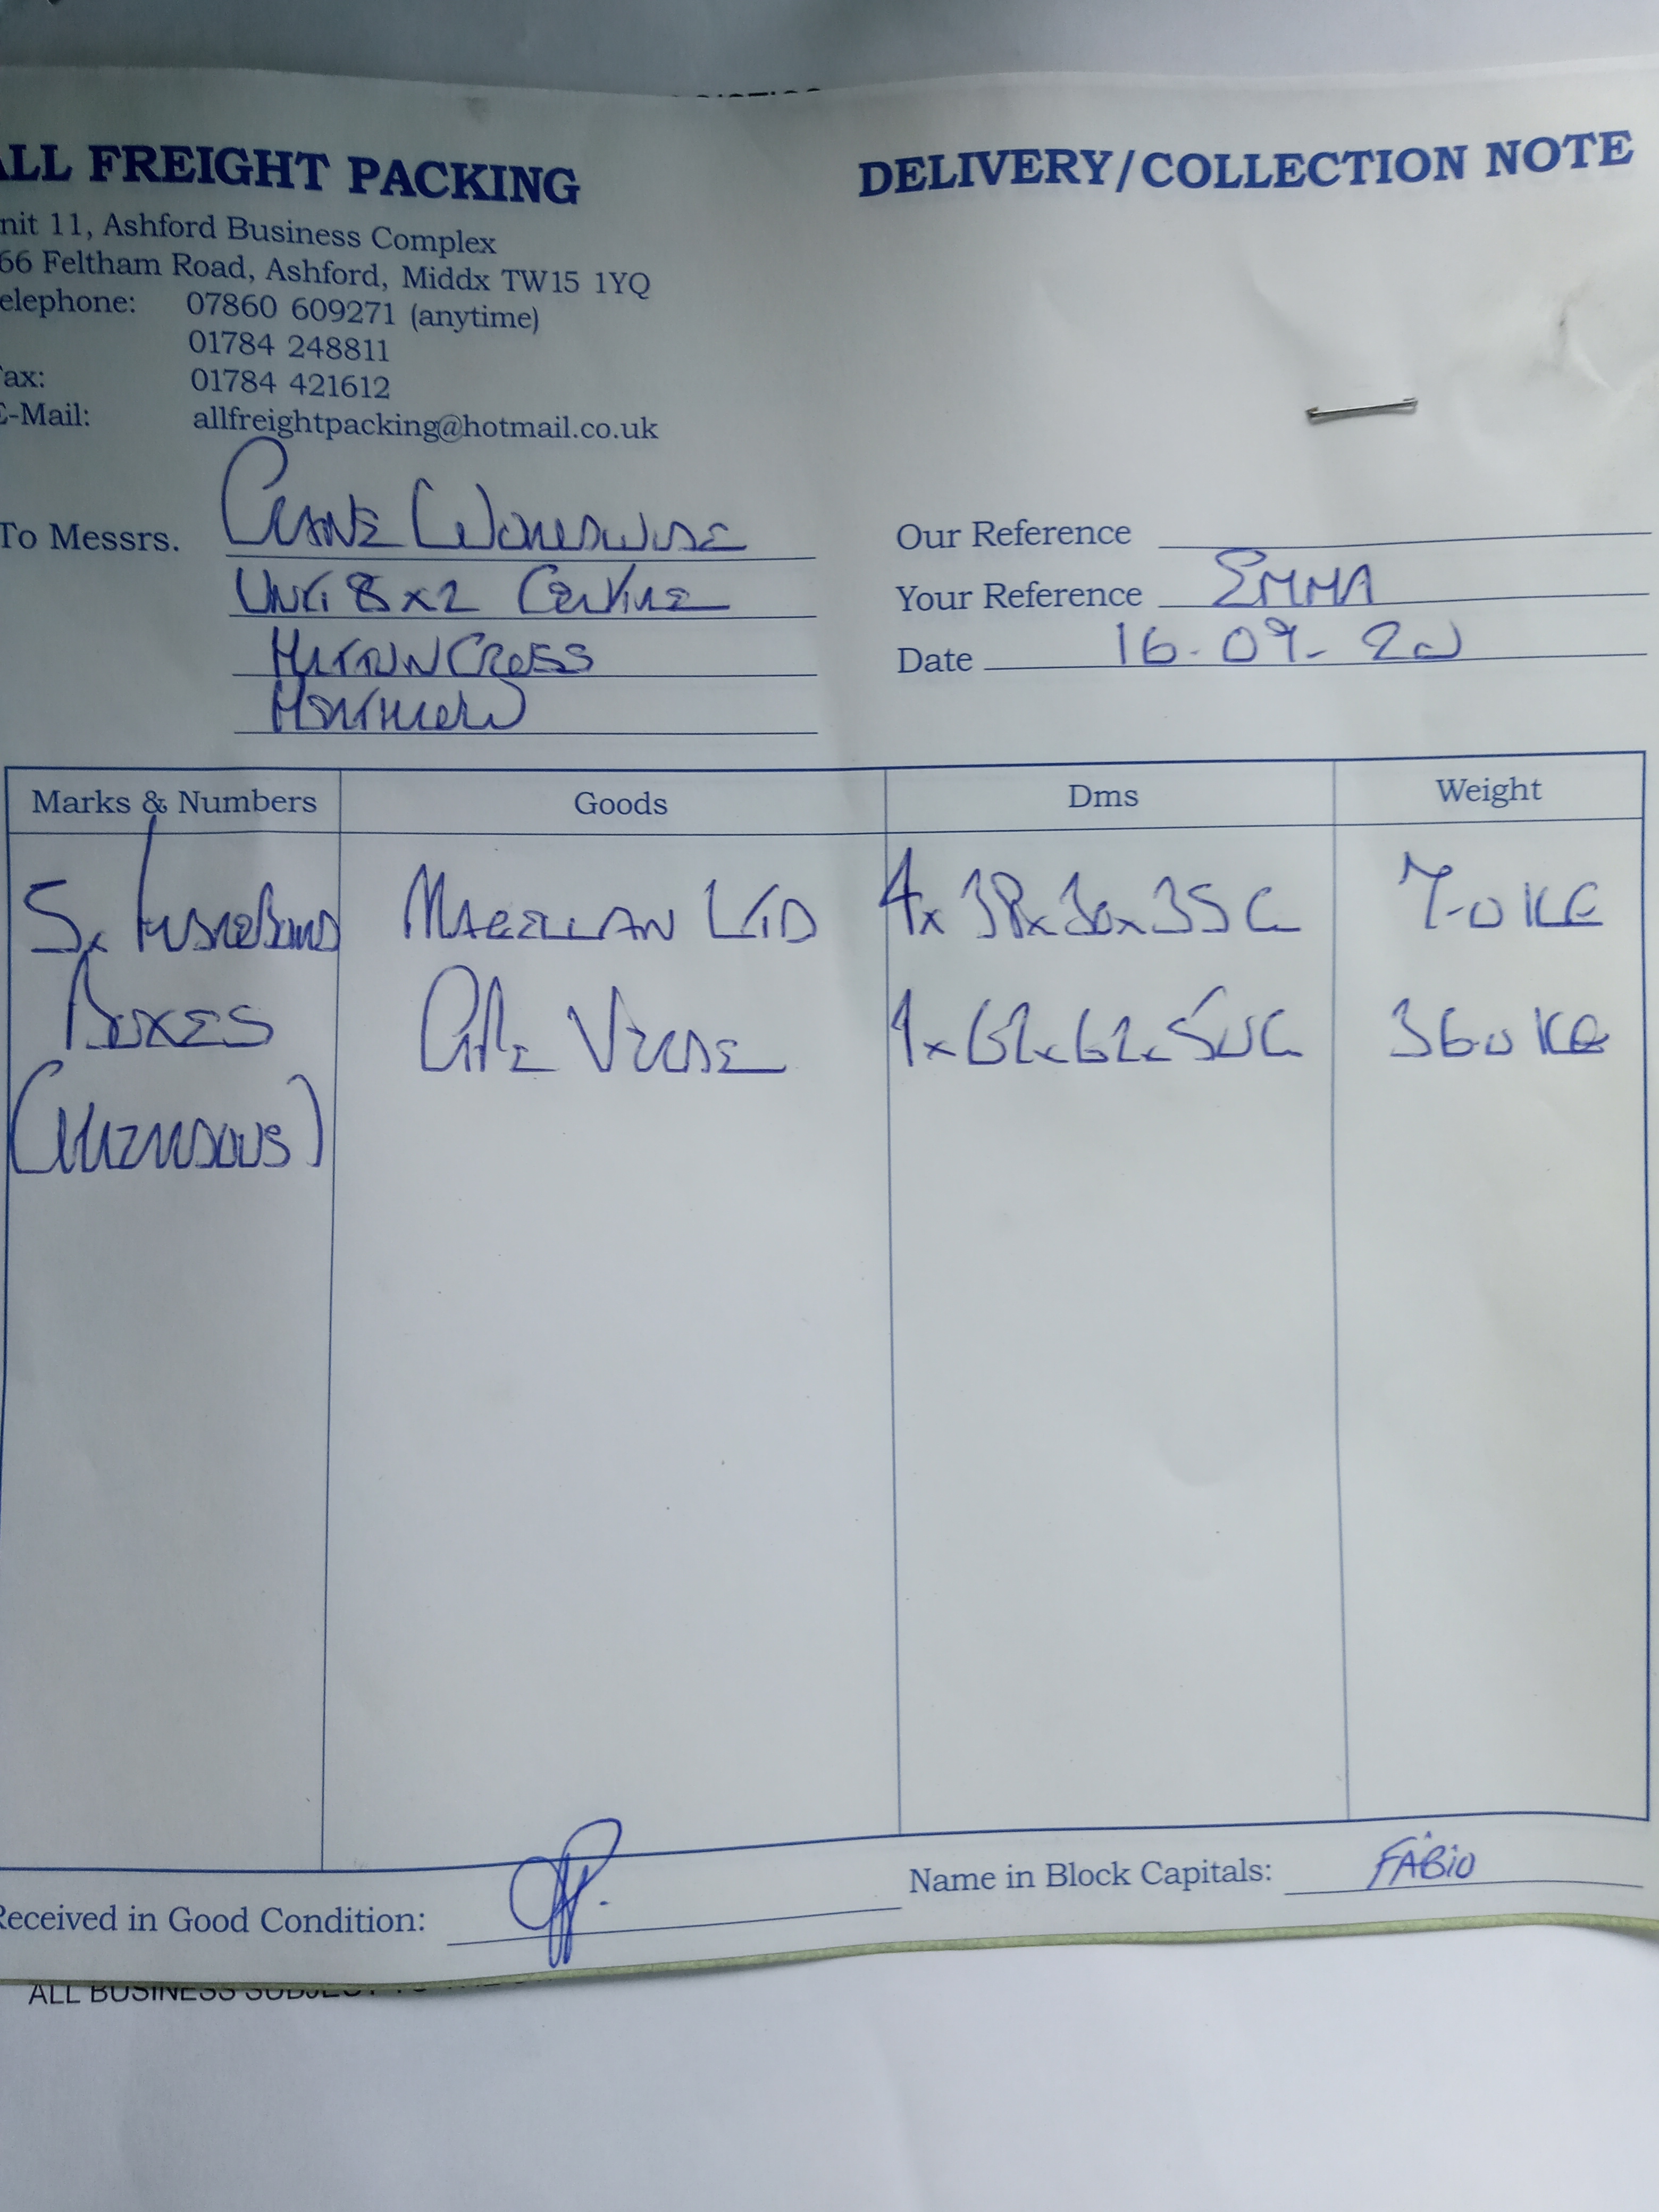 ALL FREIGHT PACKING
DELIVERY/COLLECTION NOTE
nit 11, Ashford Business Complex
66 Feltham Road, Ashford, Middx TW15 1YQ
elephone: 07860 609271 (anytime)
01784 248811
ax: 01784 421612
E-Mail: allfreightpacking@hotmail.co.uk
To Messrs. CRANE WORLDWIDE
UNIT 8 X2 CENTRE
HATTON CROSS
HEATHROW
Our Reference
Your Reference EMMA
Date 16-09-20
Marks & Numbers Goods Dms Weight
5x FIBREBOARD MAGELLAN LTD 4x38x30x35C 7-0 KG
BOXES CAPE VERDE 1x62x62x50C 36-0 KG
(HAZARDOUS)
Received in Good Condition:
Name in Block Capitals: FABIO
ALL BUSINESS SUBJECT TO THE